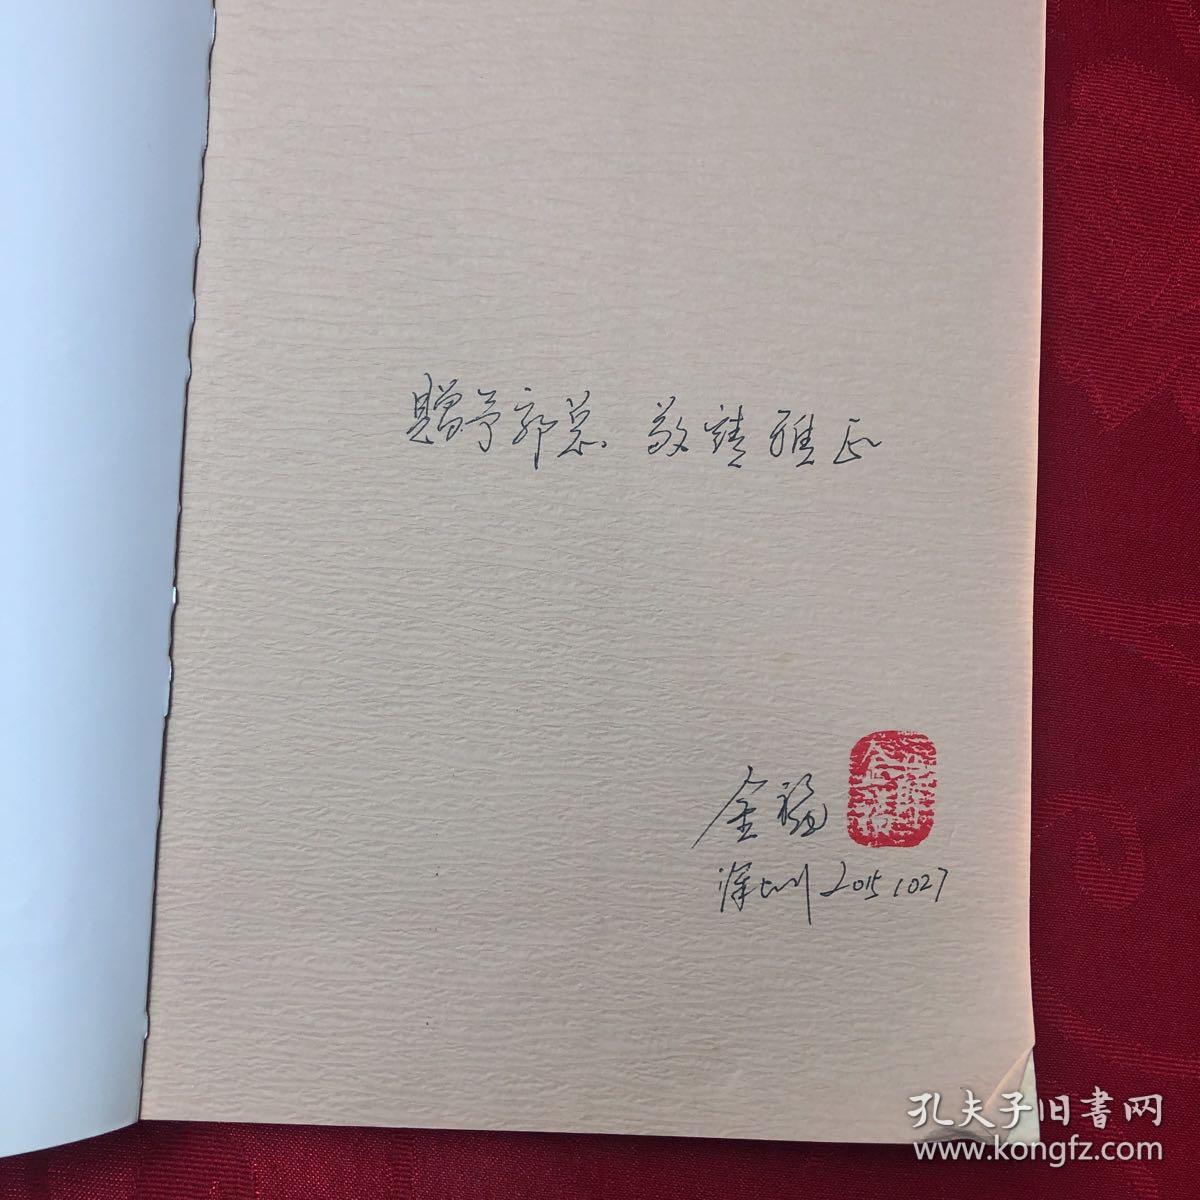 贈予郭总 敬請雅正
金福
深圳 2015.1027
孔夫子旧書网
www.kongfz.com